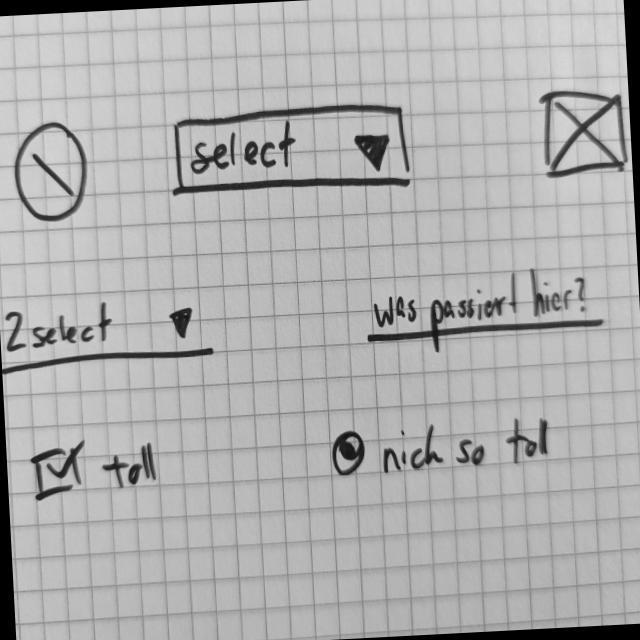 select
2 select
was passiert hier?
toll
nich so tol